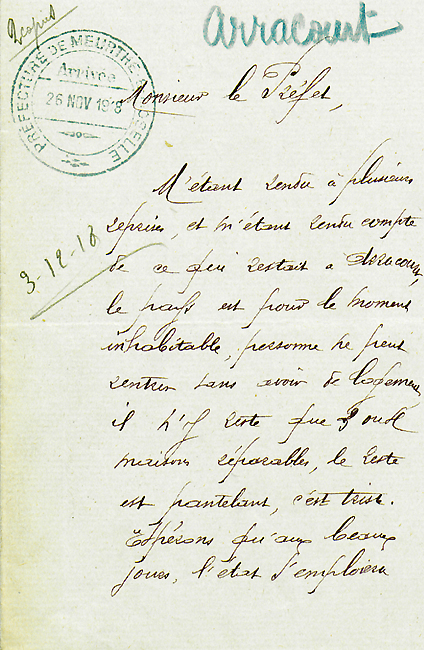 2 copies
Arracourt
PRÉFECTURE DE MEURTHE-&-MOSELLE
Arrivée
26 NOV 1918
Monsieur le Préfet,
3-12-18
M'étant rendu à plusieurs
reprises, et m'étant rendu compte
de ce qui restait a Arracourt,
le pays est pour le moment
inhabitable, personne ne peut
rentrer sans avoir de logement
il n'y reste que 3 ou 4
maisons réparables, le reste
est pantelant, c'est triste.
Espérons qu'aux beaux
jours, l'état s'emploiera